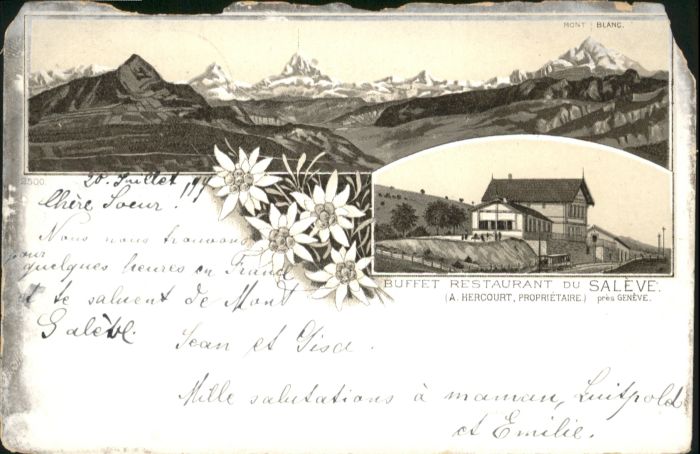 MONT BLANC.
2500.
BUFFET RESTAURANT DU SALÈVE.
(A. HERCOURT, PROPRIÉTAIRE.) près GENÈVE.
20. Juillet
Chère Soeur!
Nous nous trouvons
pour
quelques heures en
et te saluent de Mont
Salève.
Jean et
Mille salutations à maman, Luitpold
et Emilie.